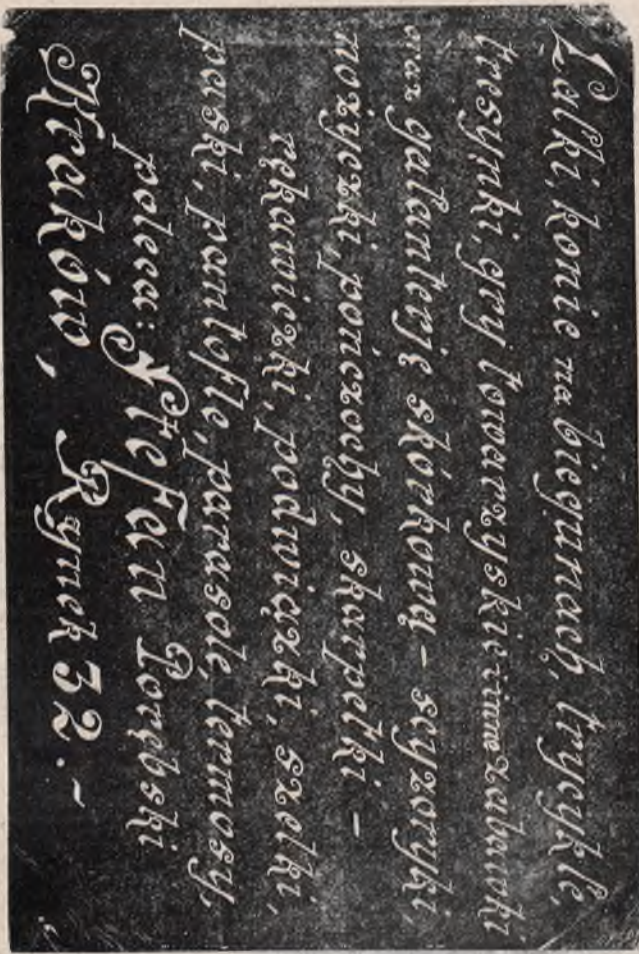 Lalki, konie na biegunach, trycykle,
tresynki, gry towarzyskie i inne zabawki
oraz galanterję skórkową - scyzoryki,
nożyczki, pończochy, skarpetki -
rękawiczki, podwiązki, szelki,
paski, pantofle, parasole, termosy,
poleca: Stefan Porębski
Kraków, Rynek 32.-